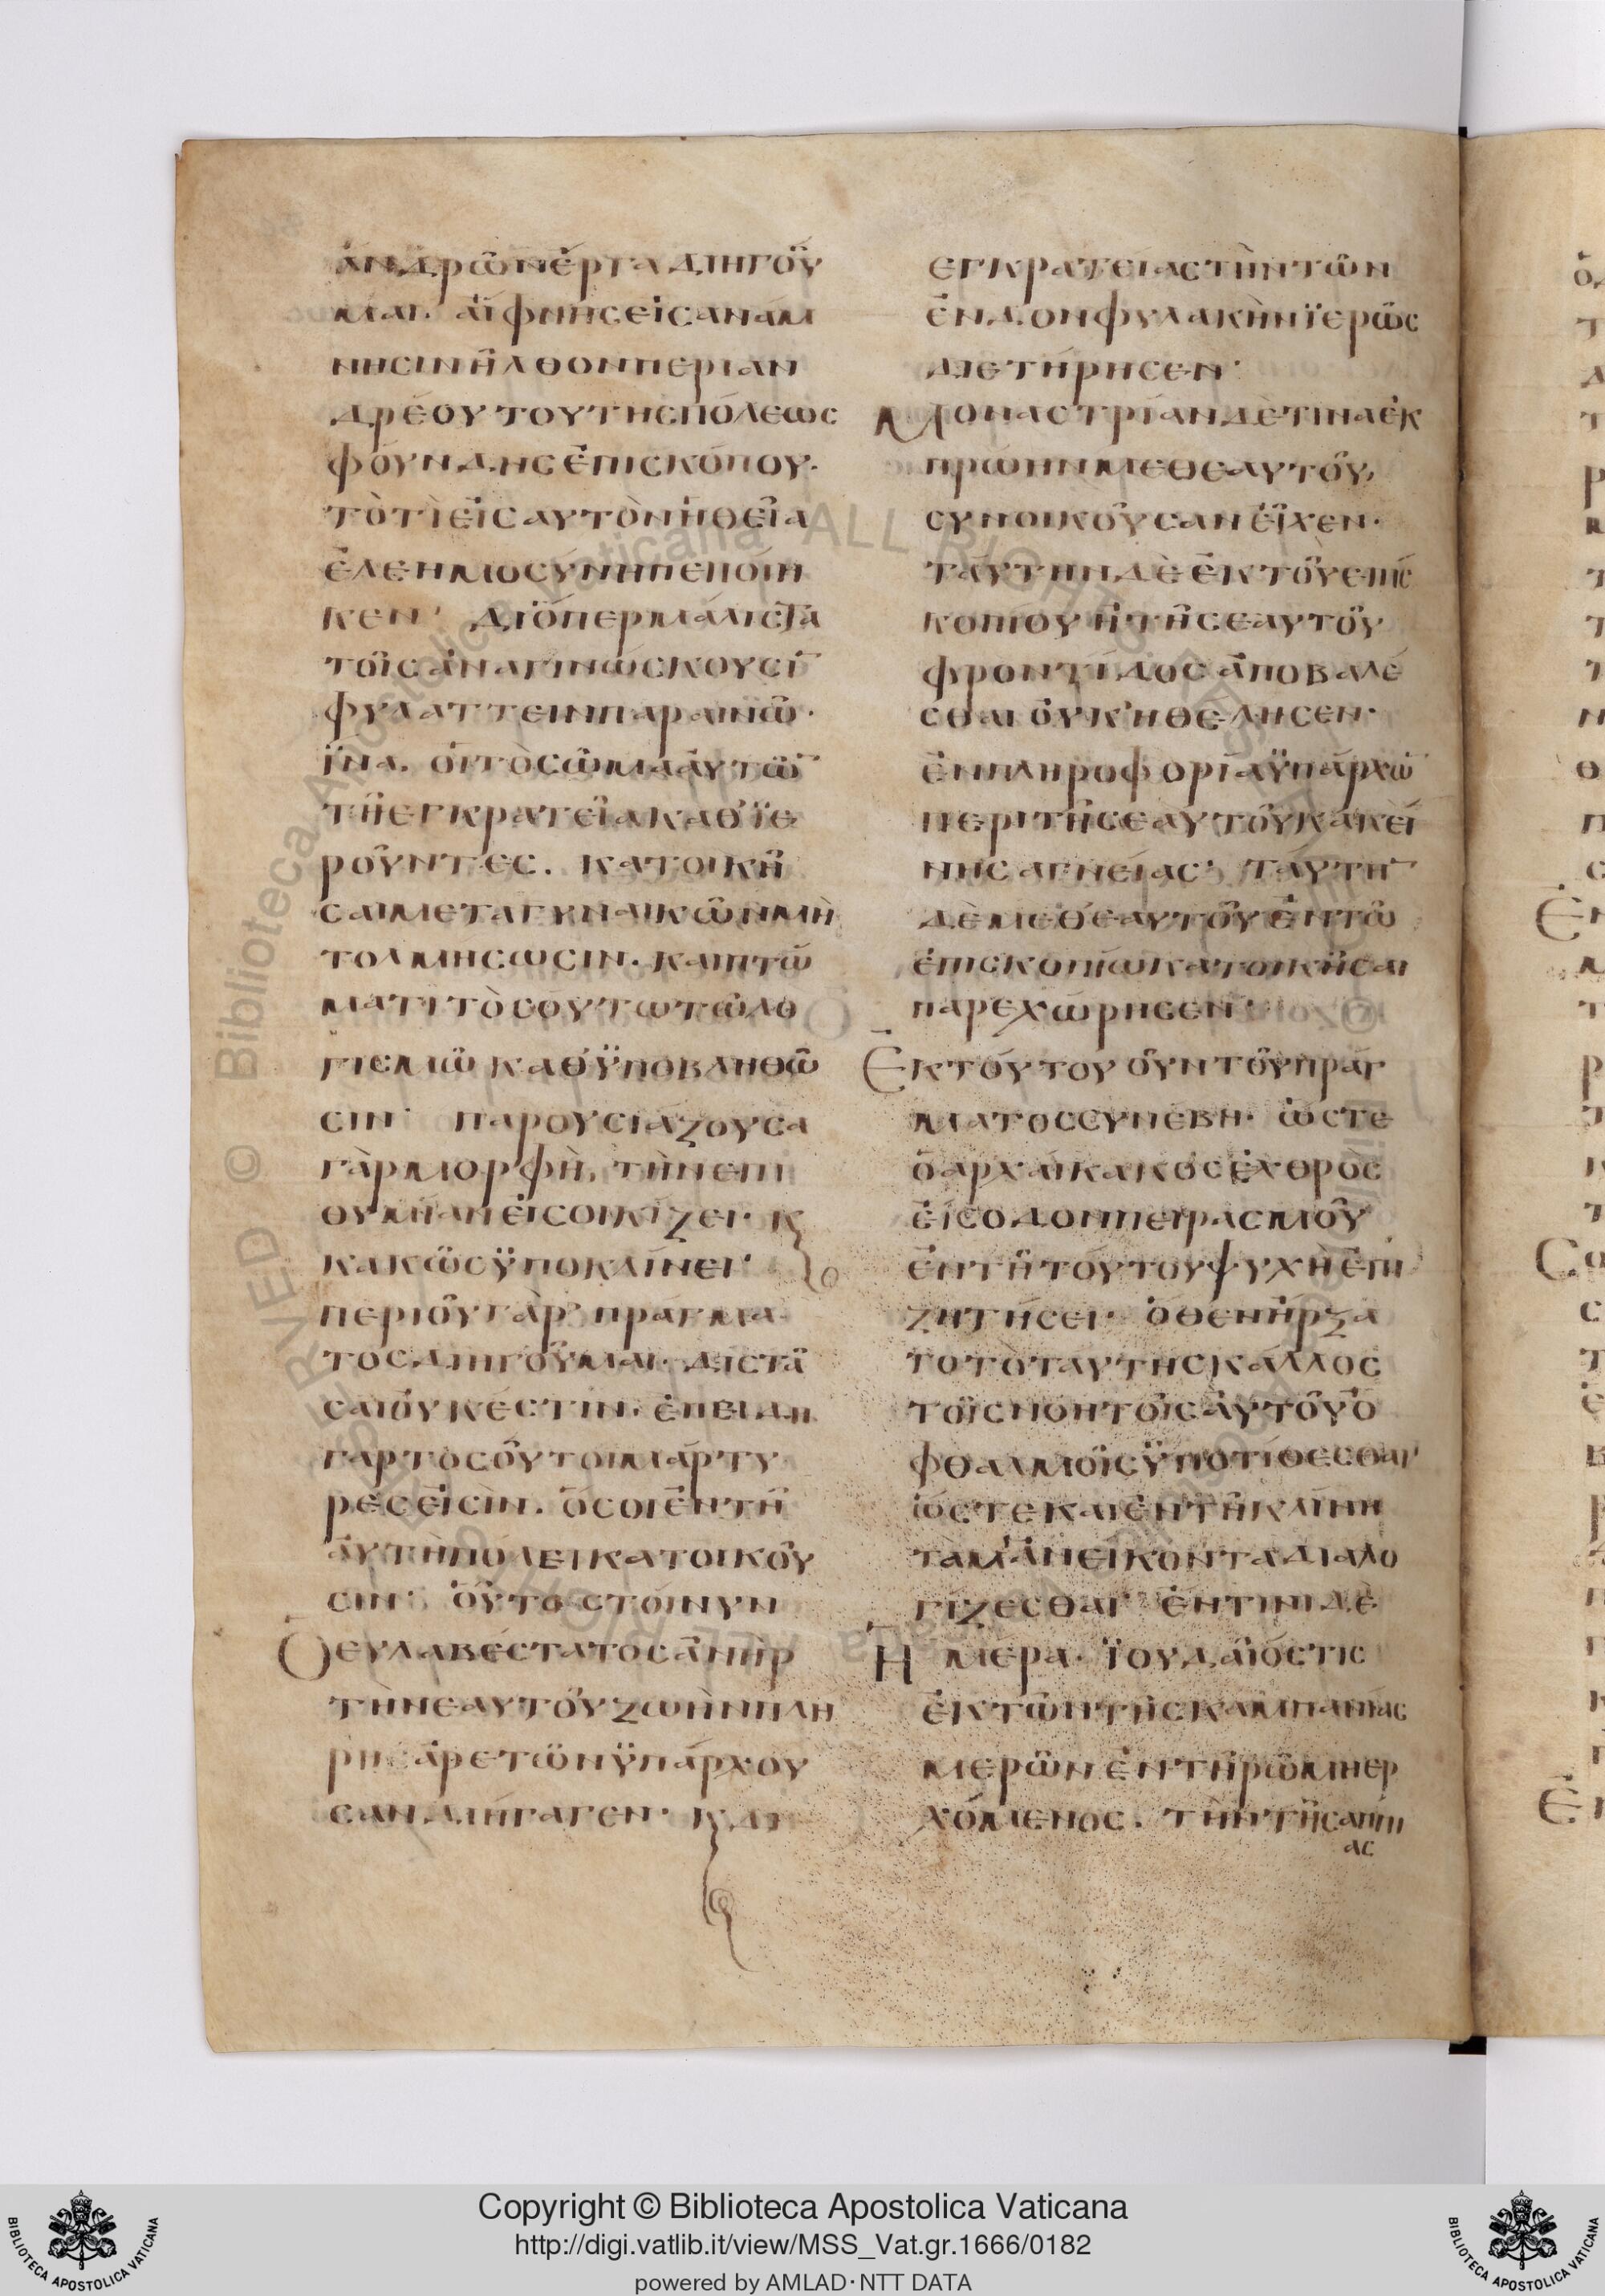 ἀνδρῶν ἔργα διηγοῦ
μαι. αἴφνης εἰς ἀνάμ
νησιν ἦλθον περὶ ἀν
δρέου τοῦ τῆς πόλεως
φούνδης ἐπισκόπου.
τὸ τὶ εἰς αὐτὸν ἡ θεία
ἐλεημοσύνη πεποίη
κεν· διόπερ μάλιστα
τοῖς ἀναγινώσκουσῑ
φυλάττειν παραινῶ·
ἵνα. οἱ τὸ σῶμα αὐτῶ̄
τῆ ἐγκρατεία καθϊε
ροῦντες. κατοικῆ
σαι μετὰ γυναικῶν μὴ
τολμήσωσιν. καὶ πτώ
ματι τοσούτω τῶ λο
γισμῶ καθϋποβληθῶ
σιν· παρουσιάζουσα
γὰρ μορφὴ, τὴν ἐπι
θυμίαν εἰσοικίζει· κ
κακῶς ϋποκλίνει·
περὶ οὗ γὰρ πράγμα
τος διηγοῦμαι. διστά
σαι οὐκ ἔστιν. ἐπειδὴ
γὰρ τοσοῦτοι μάρτυ
ρες εἰσὶν. ὅσοι ἐν τῆ
αὐτῆ πόλει κατοικοῦ
σιν· οὗτος τοίνυν
Ὁ εὐλαβέστατος ἀνὴρ
τὴν ἑαυτοῦ ζωὴν πλή
ρης ἀρετῶν ϋπάρχου
σαν διήγαγεν· κ δι
ἐγκρατείας τὴν τῶν
ἔνδον φυλακὴν ϊερῶς
διετήρησεν·
Μοναστρίαν δέ τινα ἐκ
πρώην μεθ ἑαυτοῦ,
συνοικοῦσαν εἶχεν·
ταύτην δὲ ἐκ τοῦ ἐπισ
κοπίου ἢ τῆς ἑαυτοῦ
φροντίδος ἀποβαλέ
σθαι οὐκ ἠθέλησεν·
ἐν πληροφορία ϋπάρχω̄
περὶ τῆς ἑαυτοῦ κἀκεί
νης ἁγνείας· ταύτη̄
δὲ μεθ ἑαυτοῦ ἐν τῶ
ἐπισκοπίω κατοικῆσαι
παρεχώρησεν·
Ἐκ τούτου οὖν τοῦ πράγ
ματος συνέβη. ὥστε
ὁ ἀρχαίκακος ἐχθρὸς
εἴσοδον πειρασμοῦ
ἐν τῆ τούτου ψυχῆ ἐπι
ζητήσει· ὅθεν ἤρξα
το τὸ ταύτης κάλλος
τοῖς νοητοῖς αὐτοῦ ὀ
φθαλμοῖς ϋποτίθεσθαι·
ὥστε καὶ ἐν τῆ κλίνη
τὰ μὴ ἀνείκοντα διαλο
γίζεσθαι· ἐν τινὶ δὲ
Ἡμέρα. ϊουδαῖός τις
ἐκ τῶν τῆς καμπανίας
μερῶν ἐν τῆ ρώμη ἐρ
χόμενος. τὴν τῆς ἀππί
ας
Copyright © Biblioteca Apostolica Vaticana
http://digi.vatlib.it/view/MSS_Vat.gr.1666/0182
powered by AMLAD·NTT DATA
BIBLIOTECA APOSTOLICA VATICANA
BIBLIOTECA APOSTOLICA VATICANA